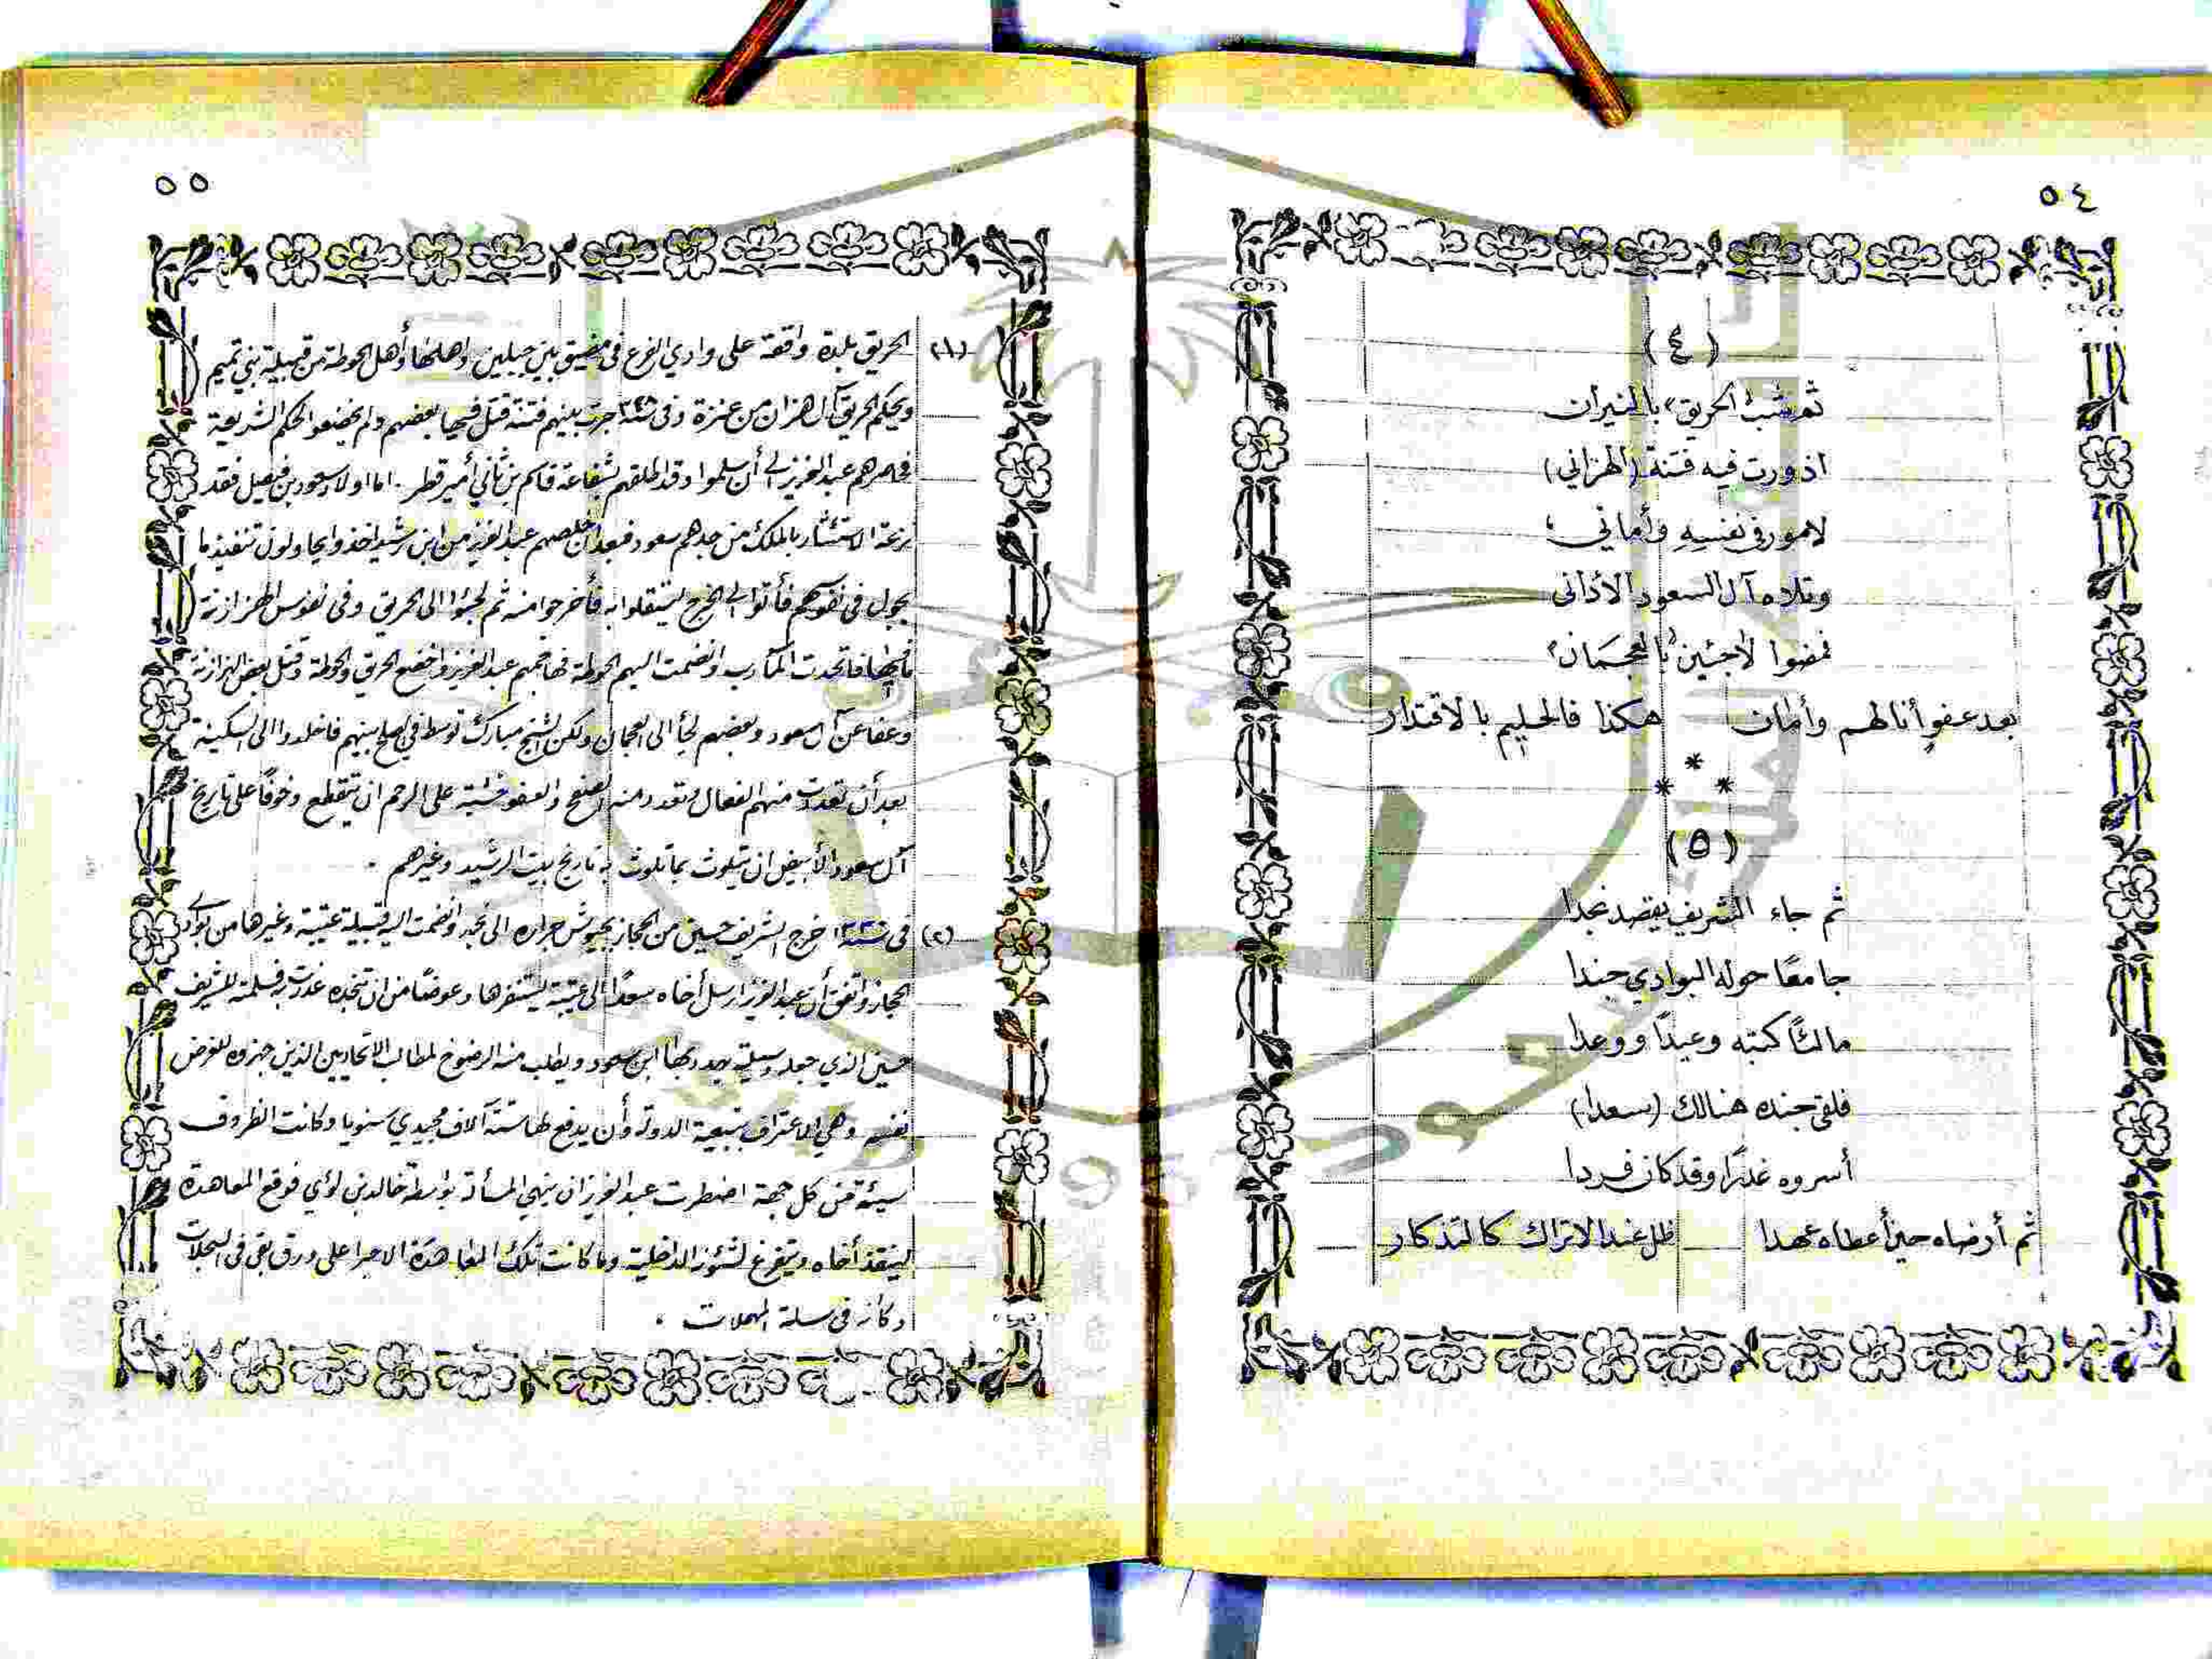 ٥٤
(٤)
ثم شب "الحريق" بالنيران
اذ ورت فيه فتنة (الهزاني)
لامور في نفسه وأماني
وتلاه آل السعود الأداني
فمضوا لاجئين "بالعجمان"
بعد عفو أنالهم وأمان هكذا فالحليم بالاقتدار
* * *
(٥)
ثم جاء الشريف يقصد نجدا
جامعًا حوله البوادي جندا
مالئًا كتبه وعيدًا ووعدا
فلقى جنده هنالك (سعدا)
أسروه غدرًا وقد كان فردا
ثم أرضاه حين أعطاه عهدا ظل عند الاتراك كالتذكار
٥٥
(١) الحريق بلدة واقعة على وادي الفرع في مضيق بين جبلين وأهلها وأهل الحوطة من قبيلة بني تميم
ويحكم الحريق آل هزان من عنزة وفي سنة جرت بينهم فتنة قتل فيها بعضهم ولم يخضعوا لحكم الشريعة
فحاصرهم عبدالعزيز الى أن سلموا وقد اطلقهم بشفاعة قاسم بن ثاني أمير قطر. اما اولاد سعود بن فيصل فقد
نزعة الاستئثار بالملك من جدهم سعود فبعد أن خلصهم عبدالعزيز من ابن رشيد اخذوا يحاولون تنفيذ ما
يجول في نفوسهم فأتوا الى الخرج ليستقلوا به فأخرجوا منه ثم لجئوا الى الحريق وفي نفوس الهزازنة
ما فيها فاتحدت المآرب وانضمت اليهم الحوطة فهاجمهم عبدالعزيز واخضع الحريق والحوطة وقتل بعض الهزازنة
وعفا عن آل سعود وبعضهم لجأ الى العجمان ولكن الشيخ مبارك توسط في الصلح بينهم فاخلدوا الى السكينة
بعد أن تعددت منهم الفعال وتعدد منه الصفح والعفو خشية على الرحم ان تتقطع وخوفًا على تاريخ
آل سعود الأبيض ان يتلوث بما تلوث به تاريخ بيت الرشيد وغيرهم .
(٢) في سنة خرج الشريف حسين من الحجاز بجيوش جراره الى نجد وانضمت اليه قبيلة عتيبة وغيرها من بوادي
الحجاز واتفق أن عبدالعزيز ارسل أخاه سعدًا الى عتيبة ليستنفرها وعوضًا من ان تنجده غدرت به فسلمته للشريف
حسين الذي جعله وسيلة يهدد بها ابن سعود ويطلب منه الرضوخ لمطالب الاتحاديين الذين جهزوه للغرض
نفسه وهي الاعتراف بتبعية الدولة وأن يدفع لها ستة آلاف مجيدي سنويا وكانت الظروف
سيئة من كل جهة اضطرت عبدالعزيز ان ينهي المسألة بواسطة خالد بن لؤي فوقع المعاهدة
لينقذ أخاه ويتفرغ لشئونه الداخلية وما كانت تلك المعاهدة الا حبرا على ورق بقي في السجلات
وكأنه في سلة المهملات .